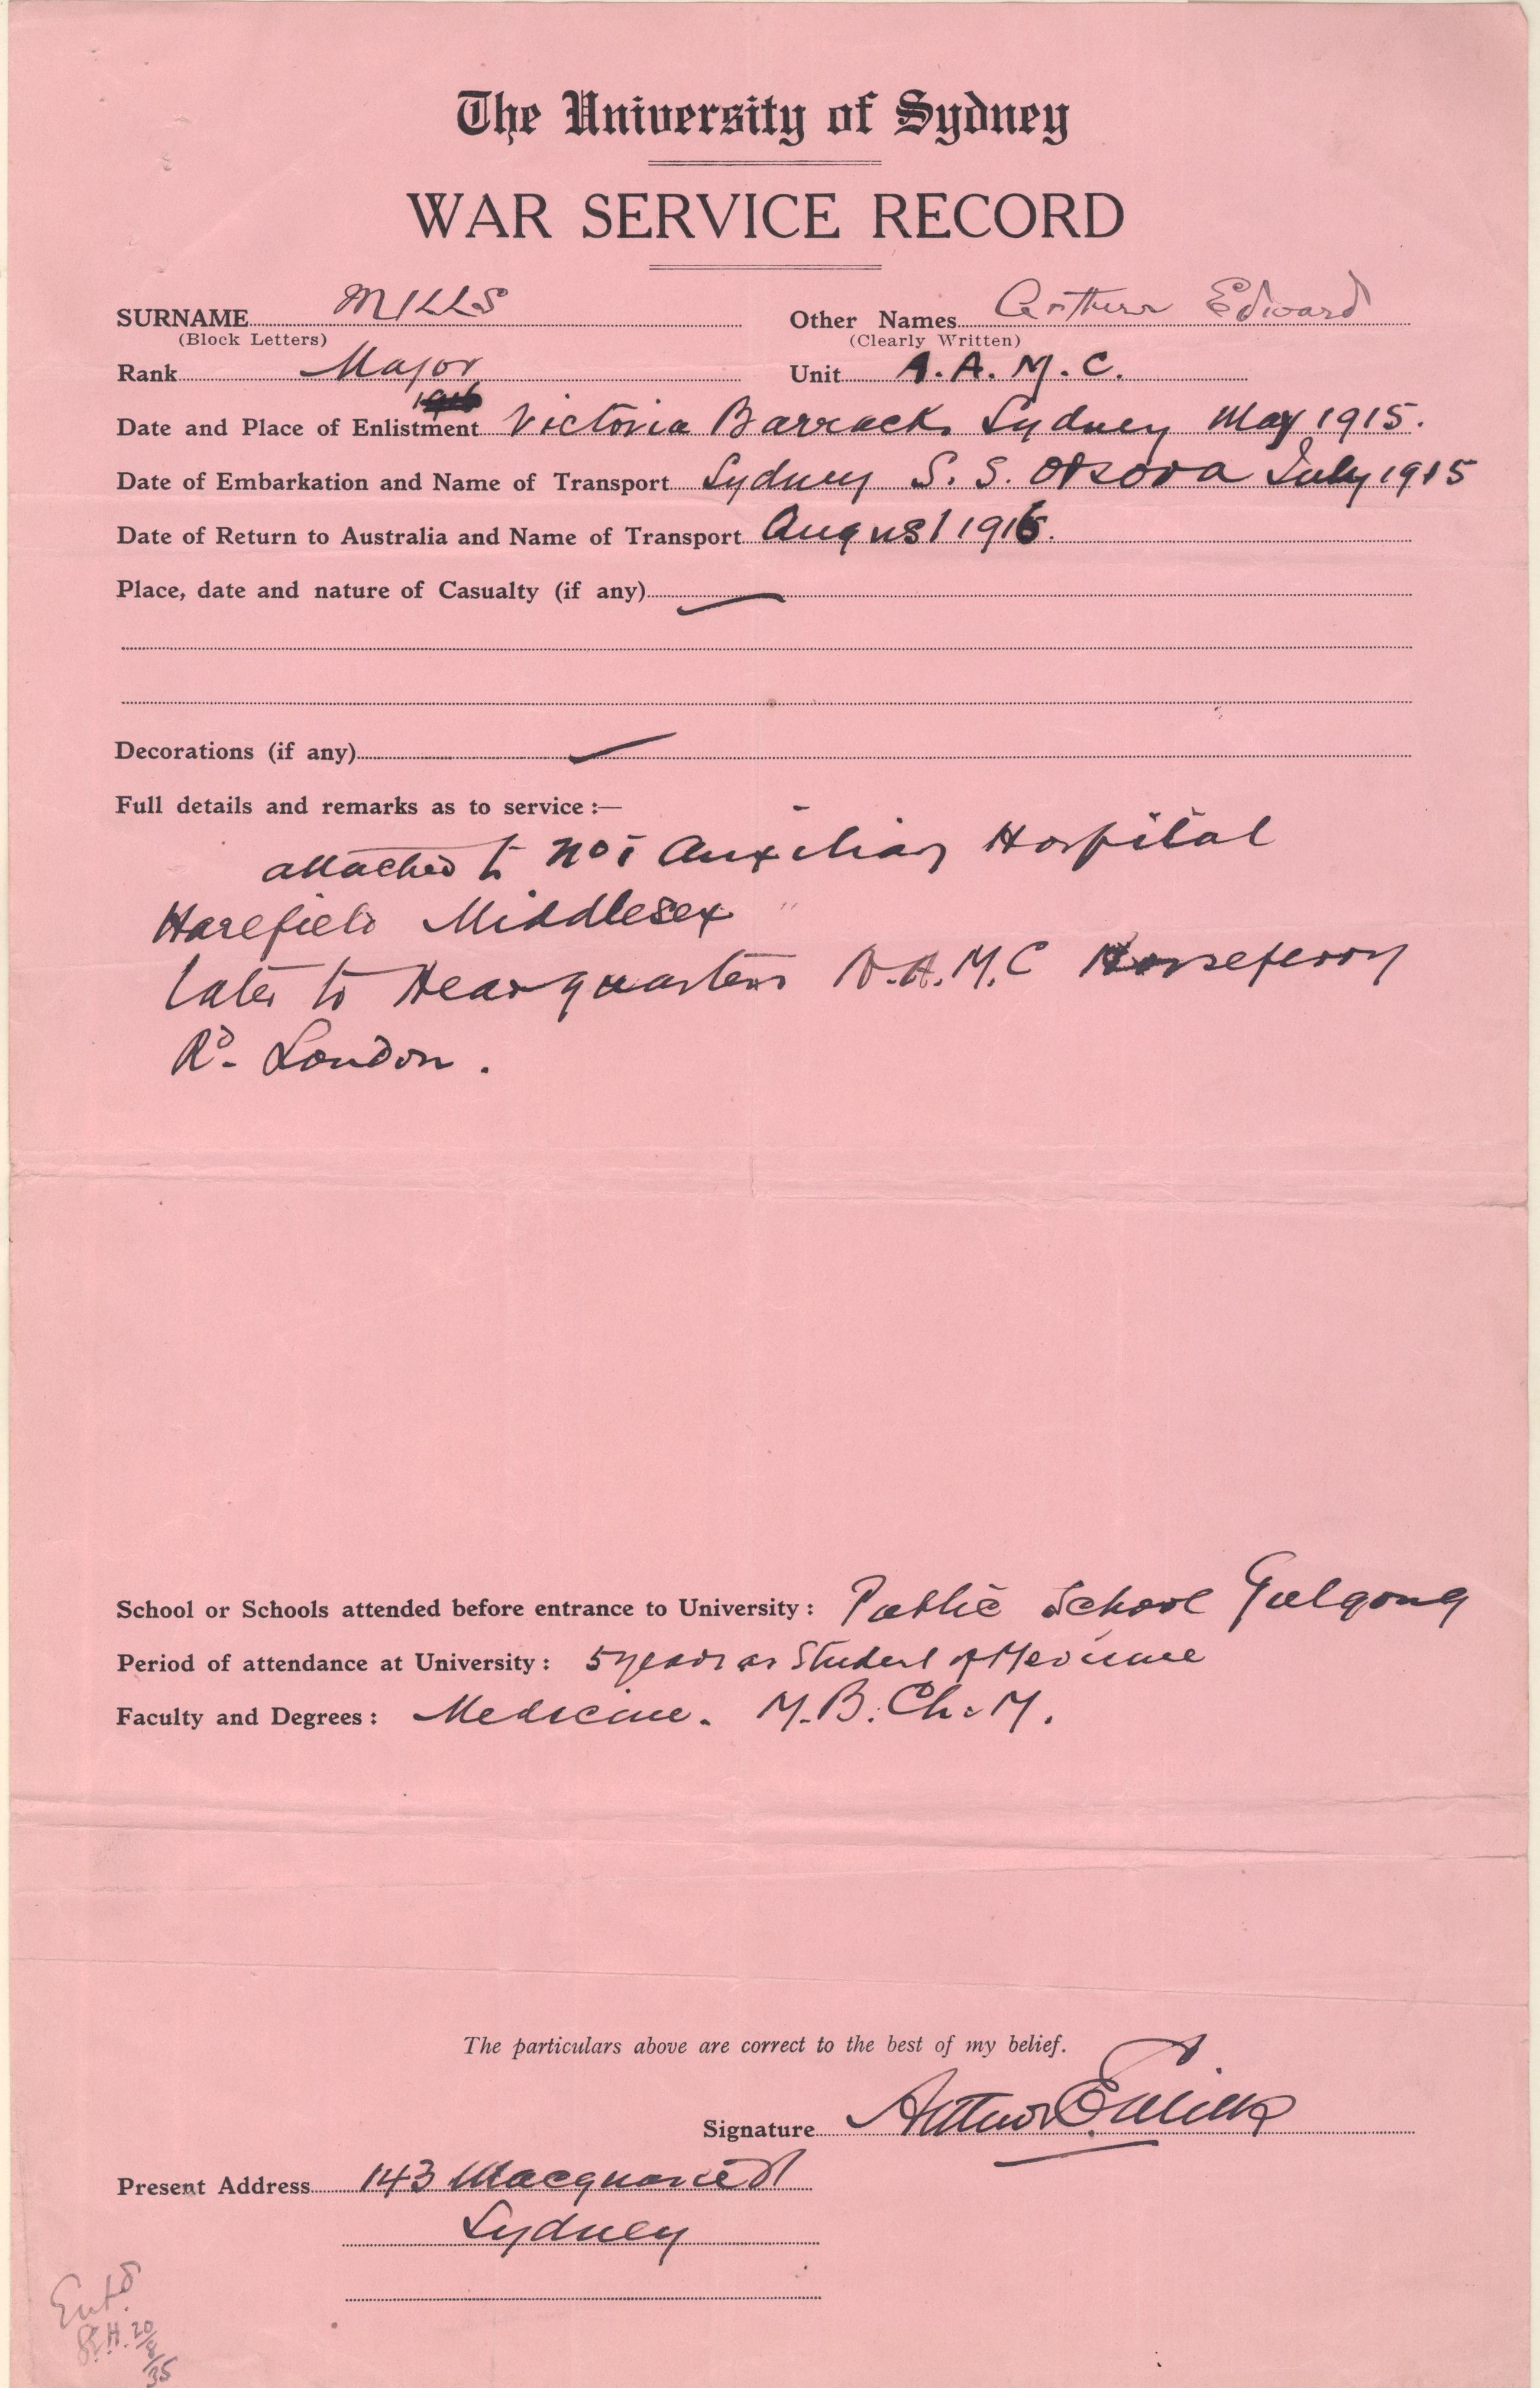 The University of Sydney
WAR SERVICE RECORD
SURNAME MILLS Other Names Arthur Edward
(Block Letters) (Clearly Written)
Rank Major Unit A.A.M.C.
Date and Place of Enlistment Victoria Barracks Sydney May 1915.
Date of Embarkation and Name of Transport Sydney S.S. Orsova July 1915
Date of Return to Australia and Name of Transport August 1916.
Place, date and nature of Casualty (if any)
Decorations (if any)
Full details and remarks as to service :—
attached to No 1 Auxiliary Hospital
Harefield Middlesex
later to Headquarters A.A.M.C Horseferry
Rd. London.
School or Schools attended before entrance to University : Public School Gulgong
Period of attendance at University : 5 years as Student of Medicine
Faculty and Degrees : Medicine. M.B. Ch.M.
The particulars above are correct to the best of my belief.
Signature Arthur E Mills
Present Address 143 Macquarie St
Sydney
Entd
H. 20/8/35